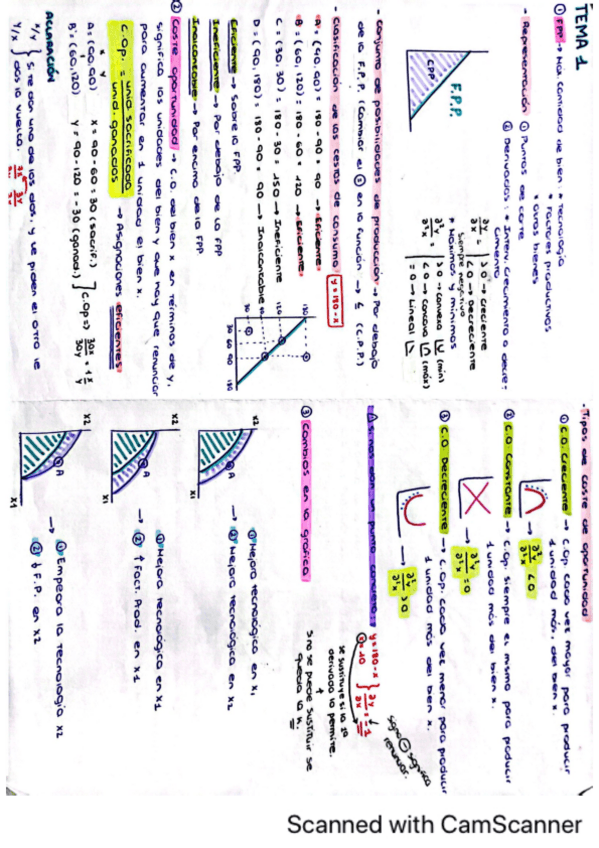 TEMA 1
① FPP → Max cantidad de bien. * Tecnología
* Factores productivos
* Otros bienes
- Representación ① Puntos de corte
② Derivadas: * Interv. crecimiento o decre:
cimiento
∂y/∂x = > 0 → creciente
< 0 → Decreciente
siempre negativo
* Máximos y mínimos
∂²y/∂²x = > 0 → convexa (min)
< 0 → concava (máx)
= 0 → Lineal
F.P.P.
CPP
- Conjunto de posibilidades de producción → Por debajo
de la F.P.P. (cambiar el = en la función → ≤ (C.P.P.)
- Clasificación de las cestas de consumo y = 180 - x
* A = (90, 90) = 180 - 90 = 90 → Eficiente
* B = (60, 120) = 180 - 60 = 120 → Eficiente
C = (30, 30) = 180 - 30 = 150 → Ineficiente
D = (90, 180) = 180 - 90 = 90 → Inalcanzable
Eficiente → Sobre la FPP
Ineficiente → Por debajo de la FPP
Inalcanzable → Por encima de la FPP
② Coste oportunidad → C.O. del bien x en términos de y.
significa las unidades del bien y que hay que renunciar
para aumentar en 1 unidad el bien x.
C.Op. = unid. sacrificada / unid. ganadas → Asignaciones eficientes
A = (90, 90) x = 90 - 60 = 30 (sacrif.)
B = (60, 120) y = 90 - 120 = -30 (ganad.)
ACLARACIÓN
x/y
y/x
Si te dan uno de los dos, y se piden el otro le
das la vuelta.
- Tipos de coste de oportunidad
① C.O. Creciente → C.Op. cada vez mayor para producir
1 unidad más, del bien x.
→ ∂²y/∂²x < 0
② C.O. Constante → C.Op. siempre es mismo para producir
1 unidad más del bien x.
→ ∂²y/∂²x = 0
③ C.O. Decreciente → C.Op. cada vez menor para producir
1 unidad más del bien x.
→ ∂²y/∂²x > 0
Si nos dan un punto concreto:
y = 180 - x
x = 10
∂y/∂x = -1
signo ⊖ significa
renunciar
se sustituye si la 1ª
derivada lo permite.
Si no se puede sustituir se
queda la K.
③ Cambios en la gráfica
x2
A
x1
→ ① Mejora tecnológica en x1
② Mejora tecnológica en x2
x2
A
x1
→ ① Mejora tecnológica en x1
② ↑ Fact. Prod. en x1
x2
A
x1
→ ① Empeora la tecnología x2
② ↓ F.P. en x2
Scanned with CamScanner